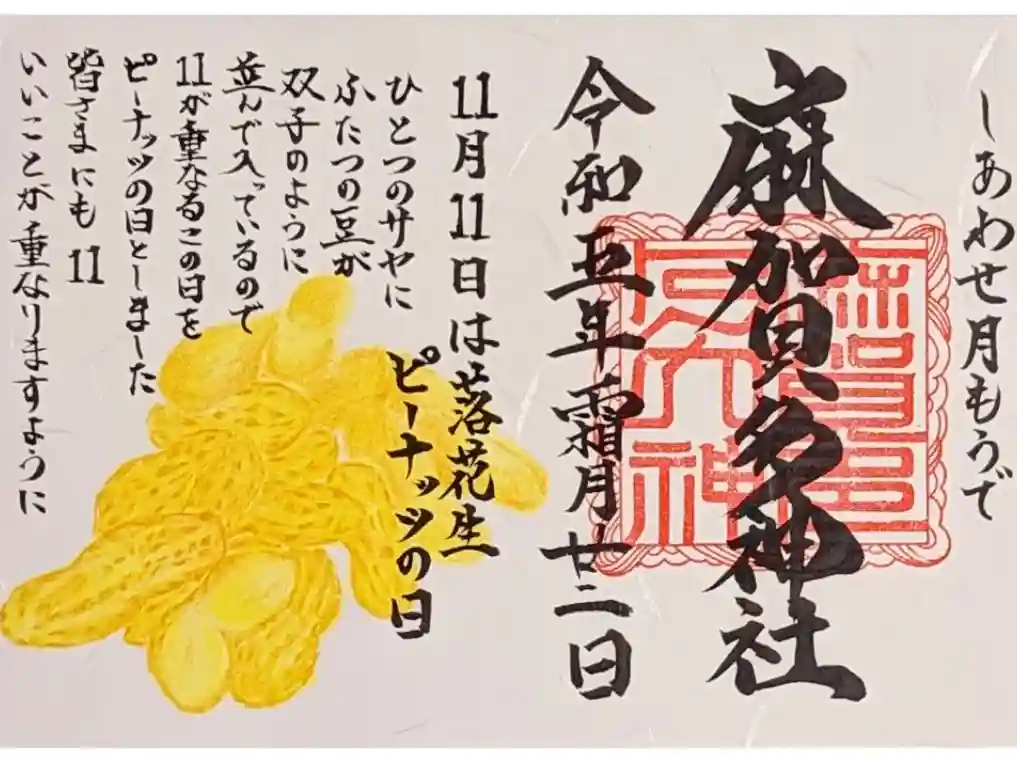 しあわせ月もうで
麻賀多神社
令和五年霜月廿二日
11月11日は落花生
ピーナッツの日
ひとつのサヤに
ふたつの豆が
双子のように
並んで入っているので
11が重なるこの日を
ピーナッツの日としました
皆さまにも11
いいことが重なりますように